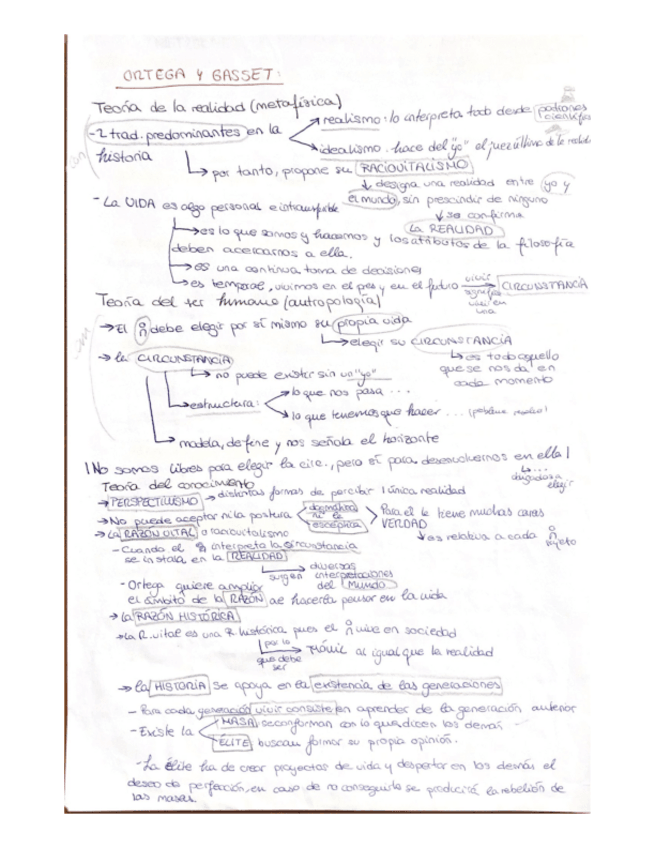 ORTEGA Y GASSET:
Teoría de la realidad (metafísica)
-2 trad. predominantes en la historia
realismo: lo interpreta todo desde patrones científicos
idealismo: hace del "yo" el juez último de la realidad
por tanto, propone su RACIOVITALISMO
designa una realidad entre yo y
el mundo, sin prescindir de ninguno
se confirma
LA REALIDAD
- La VIDA es algo personal e intransferible
es lo que somos y hacemos y los atributos de la filosofía
deben acercarnos a ella.
es una continua toma de decisiones
es temporal, vivimos en el pes y en el futuro
vivir significa vivir en una
CIRCUNSTANCIA
Teoría del ser humano (antropología)
El debe elegir por sí mismo su propia vida
elegir su CIRCUNSTANCIA
es todo aquello
que se nos da en
cada momento
la CIRCUNSTANCIA
no puede existir sin un "yo"
estructura:
lo que nos pasa ...
lo que tenemos que hacer ...
modela, define y nos señala el horizonte
¡No somos libres para elegir la circ., pero sí para desenvolvernos en ella!
elegir
Teoría del conocimiento
PERSPECTIVISMO
distintas formas de percibir 1 única realidad
No puede aceptar ni la postura
dogmática
ni la
escéptica
Para el le tiene muchas caras
VERDAD
es relativa a cada
sujeto
La RAZÓN VITAL o raciovitalismo
- Cuando el interpreta la circunstancia
se instala en la REALIDAD
surgen
diversas
interpretaciones
del Mundo
- Ortega quiere ampliar
el ámbito de la RAZÓN de hacerla pensar en la vida
la RAZÓN HISTÓRICA
La R. vital es una R histórica pues el vive en sociedad
por lo
que debe
ser
MÓVIL al igual que la realidad
la HISTORIA se apoya en la existencia de las generaciones
- Para cada generación vivir consiste en aprender de la generación anterior
- Existe la
MASA: se conforman con lo que dicen los demás
ÉLITE: buscan formar su propia opinión.
- La élite ha de crear proyectos de vida y despertar en los demás el
deseo de perfección, en caso de no conseguirlo se producirá la rebelión de
las masas.